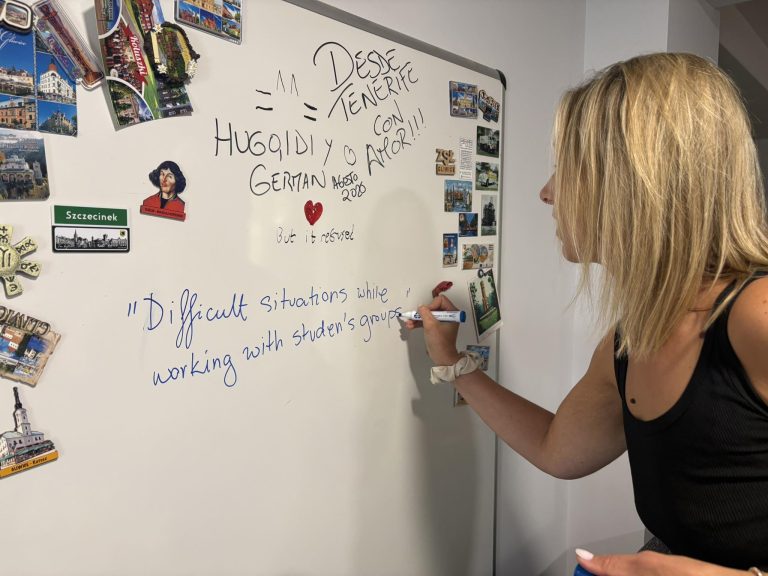 DESDE
TENERIFE
CON
AMOR!!!
Y
GERMAN AGOSTO
2025
But it refused
"Difficult situations while
working with studen's groups"
Szczecinek
GLIWICE